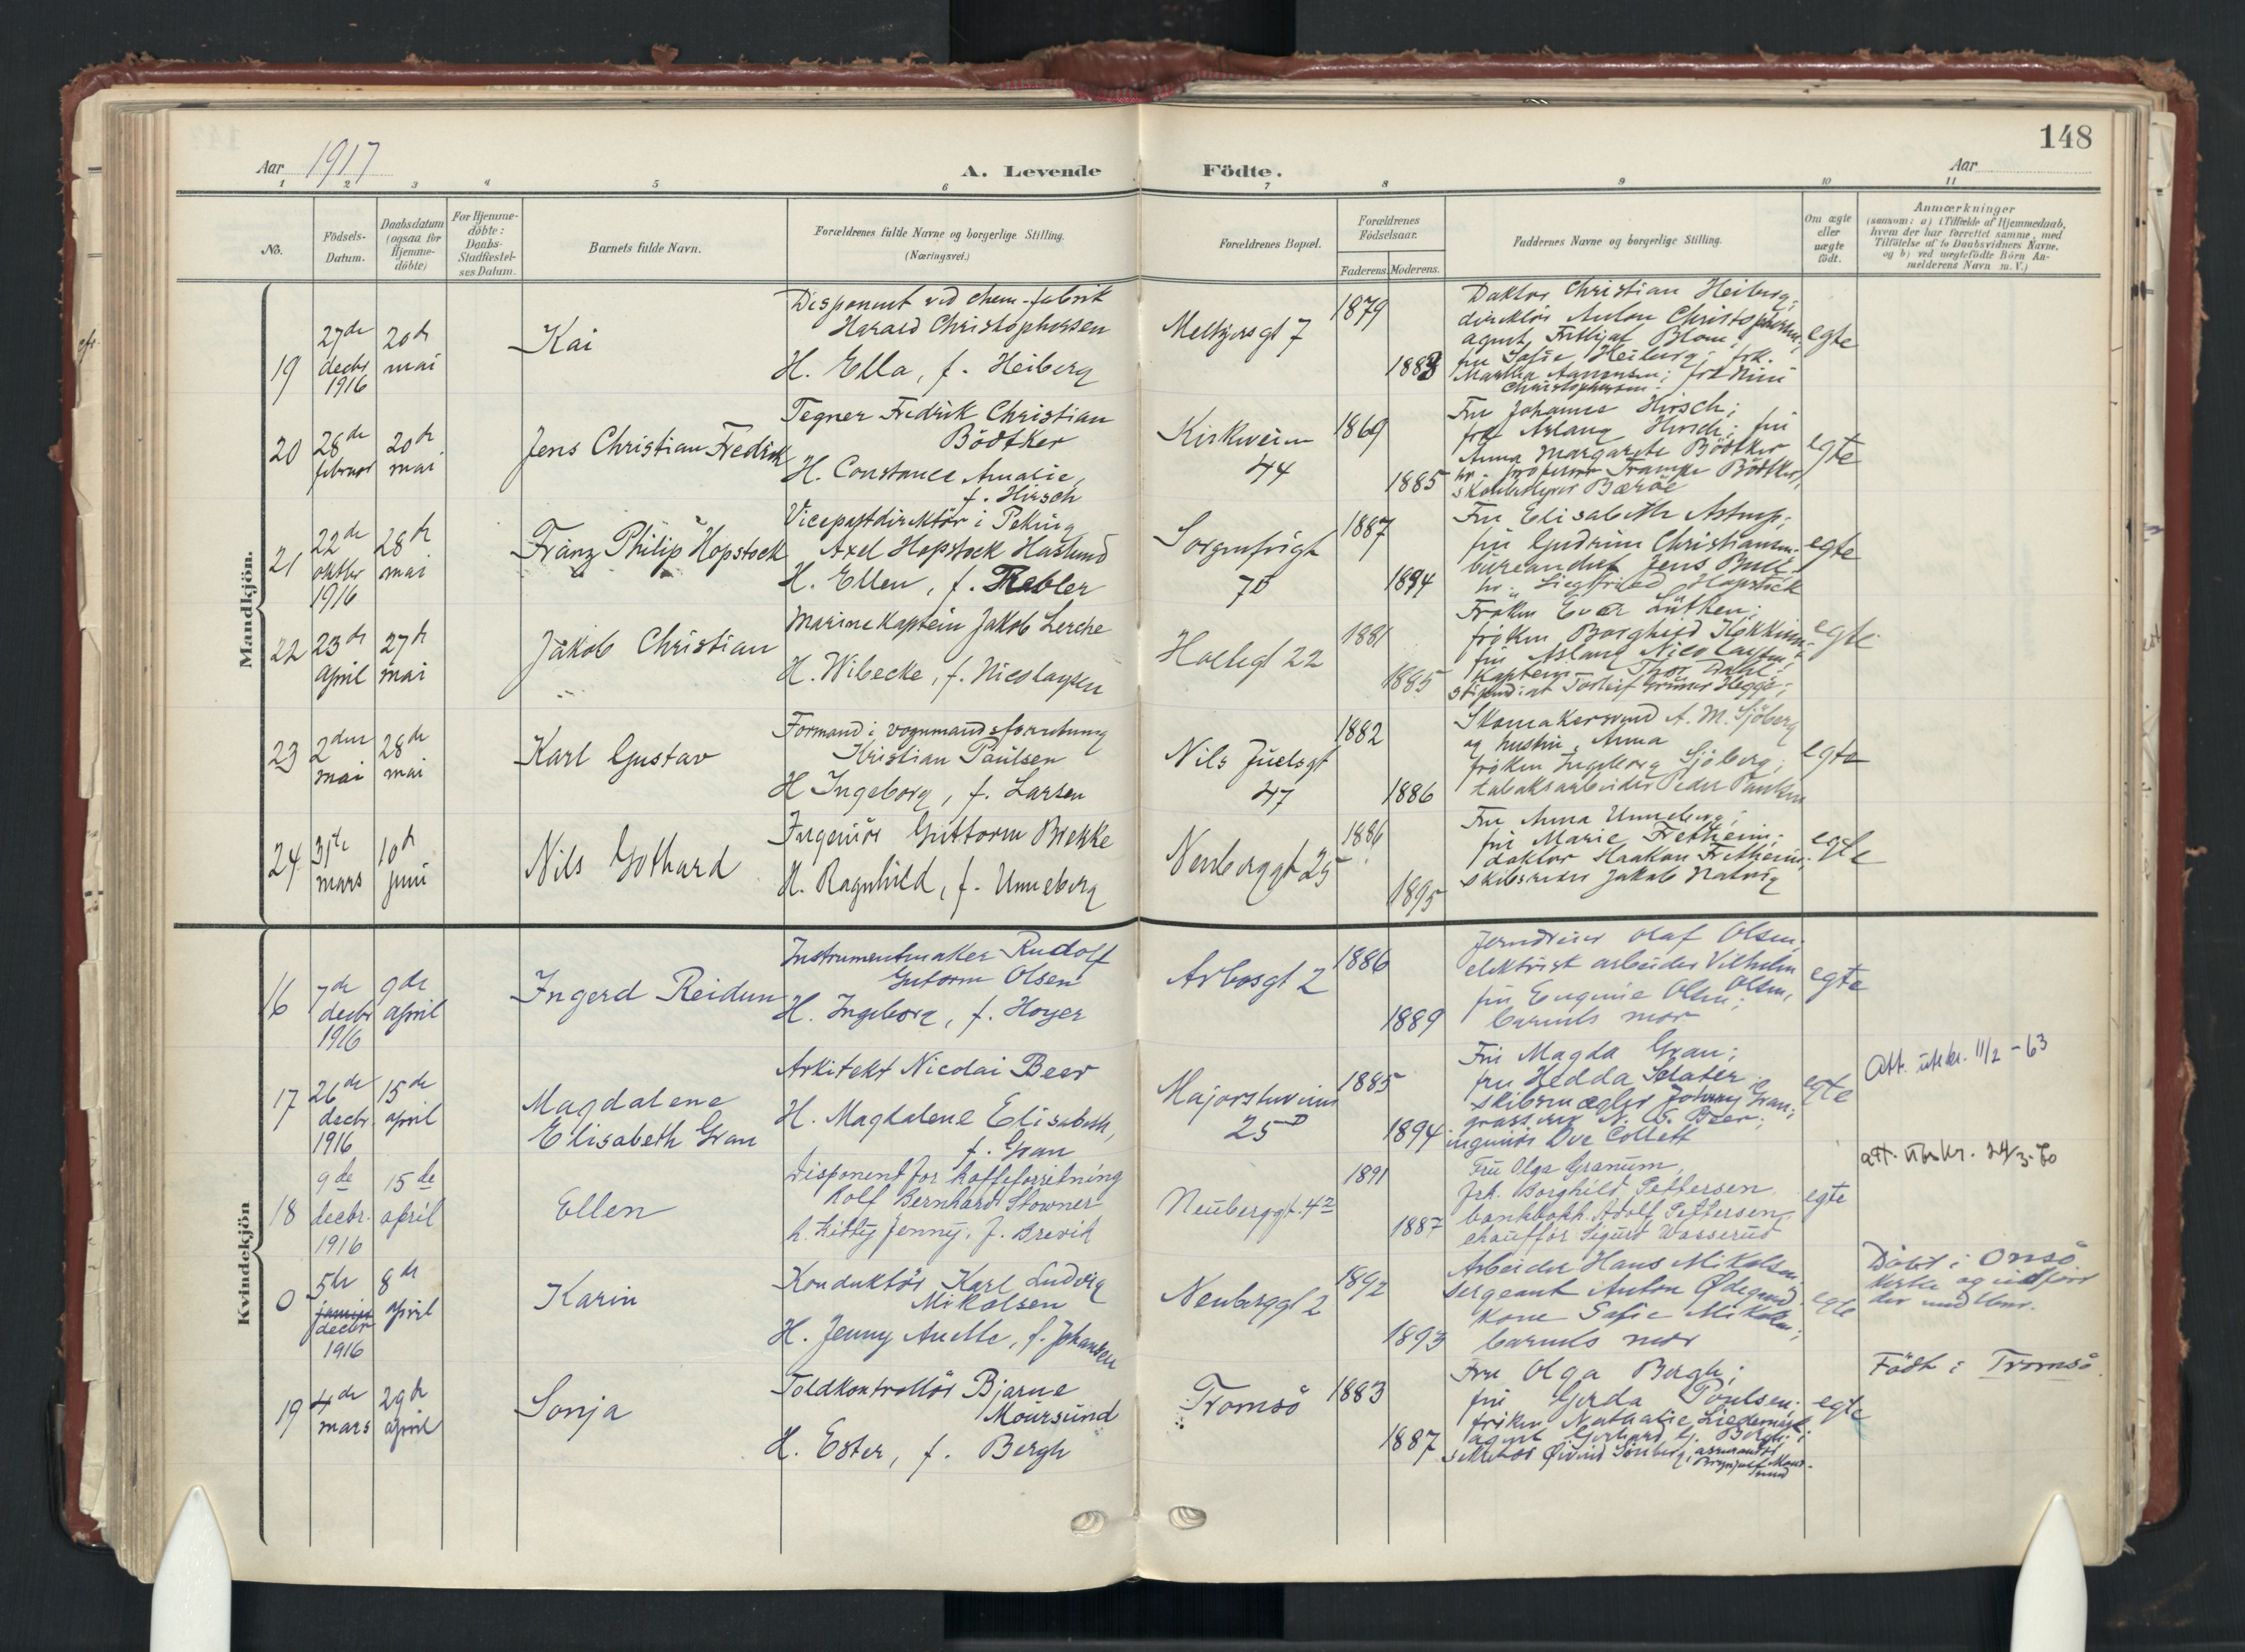 148
Aar 1917
A. Levende Födte.
Aar
1 2 3 4 5 6 7 8 9 10 11
No.
Födsels-
Datum.
Daabsdatum
(ogsaa for
Hjemme-
döbte)
For Hjemme-
döbte:
Daabs-
Stadfæstel-
ses Datum.
Barnets fulde Navn.
Forældrenes fulde Navne og borgerlige Stilling.
(Næringsvei.)
Forældrenes Bopæl.
Forældrenes
Födselsaar.
Faderens. Moderens.
Faddernes Navne og borgerlige Stilling.
Om ægte
eller
uægte
födt.
Anmærkninger
(saasom: a) i Tilfælde af Hjemmedaab,
hvem der har forrettet samme, med
Tilföielse af to Daabsvidners Navne,
og b) ved uægtefödte Börn An-
melderens Navn m. V.)
Mandkjön.
19
27de
decbr
1916
20de
mai
Kai
Disponent ved chem. fabrik
Harald Christophersen
H. Ella, f. Heiberg
Meltzersgt 7
1879
1883
Doktor Christian Heiberg;
direktör Anton Christophersen;
agent Fridtjof Blom;
fru Sofie Heiberg; frk.
Martha Aanensen; frk Mimi
Christophersen.
egte
20
28de
februar
20de
mai
Jens Christian Fredrik
Tegner Fredrik Christian
Bödtker
H. Constance Amalie,
f. Hirsch
Kirkeveien
44
1869
1885
Fru Johanne Hirsch;
frk Aslaug Hirsch; fru
Anna Margarete Bödtker
Bödtker,
skolebestyrer Baröe
egte
21
22de
oktbr
1916
28de
mai
Franz Philip Hopstock
Vicepostdirektör i Peking
Axel Hopstock Haslund
H. Ellen, f.
Sorgenfrigt
7B
1887
1894
Fru Elisabeth Astrup;
fru Gudrun Christiansen;
Jens Bull
hr. Siegfried Hopstock
egte
22
23de
april
27de
mai
Jakob Christian
Marinekaptein Jakob Lerche
H. Wibecke, f. Nicolaysen
Holtegt 22
1881
1885
Fröken Eva Lütken;
fröken Borghild
fru Aslaug Nicolaysen;
Kaptein Thor Dahl;
stipendiat Torleif Hegge;
egte
23
2den
mai
28de
mai
Karl Gustav
Formand i vognmandsforretning
Kristian Paulsen
H Ingeborg, f. Larsen
Nils Juelsgt
47
1882
1886
Skomakersvend A. M. Sjöberg
og hustru Anna
fröken Ingeborg Sjöberg;
tobaksarbeider Peder Paulsen
egte
24
31te
mars
10de
juni
Nils Gothard
Ingeniör Guttorm Brekke
H. Ragnhild, f. Unneberg
Neuberggt 25
1886
1895
Fru Anna Unneberg;
fru Marie Fretheim;
doktor Haakon Fretheim;
skibsreder Jakob Natvig
egte
Kvindekjön
16
7de
decbr
1916
9de
april
Ingerd Reidun
Instrumentmaker Rudolf
Gutorm Olsen
H. Ingeborg, f. Hoyer
Arbosgt 2
1886
1889
Jerndreier Olaf Olsen;
elektrisk arbeider Vilhelm
Olsen,
fru Eugenie Olsen;
barnets mor
egte
17
26de
decbr.
1916
15de
april
Magdalene
Elisabeth Gran
Arkitekt Nicolai Beer
H. Magdalene Elisabeth,
f. Gran
Majorstuveien
25D
1885
1894
Fru Magda Gran;
fru Hedda Sclater
skibsmægler Johnny Gran;
grosserer N. A. Beer;
ingeniör Ove Collett
egte
Att. utskr. 11/2 - 63
18
9de
decbr.
1916
15de
april
Ellen
Disponent for kaffeforretning
Rolf Bernhard Stowner
h. Kitty Jenny, f. Brevik
Neuberggt. 4B
1891
1887
Fru Olga Granum,
frk. Borghild Pettersen
bankbokh. Adolf Pettersen
chaufför Sigurd Wasserud
egte
att. utskr. 24/3-60
0
5te
decbr
1916
8de
april
Karin
Konduktör Karl Ludvig
Mikalsen
H. Jenny Anette, f. Johansen
Neuberggt 2
1892
1893
Arbeider Hans Mikalsen
sergeant Anton Ødegaard
Kone Sofie Mikalsen;
barnets mor
egte
Döbt i Onsö
kirke og indfört
der med No.
19
4de
mars
29de
april
Sonja
Toldkontrollör Bjarne
Moursund
H. Ester, f. Bergh
Tromsö
1883
1887
Fru Olga Bergh;
fru Gerda Poulsen;
fröken Nathalie
agent Gerhard G. Bergh;
sekretær Øivind
egte
Födt i Tromsö.